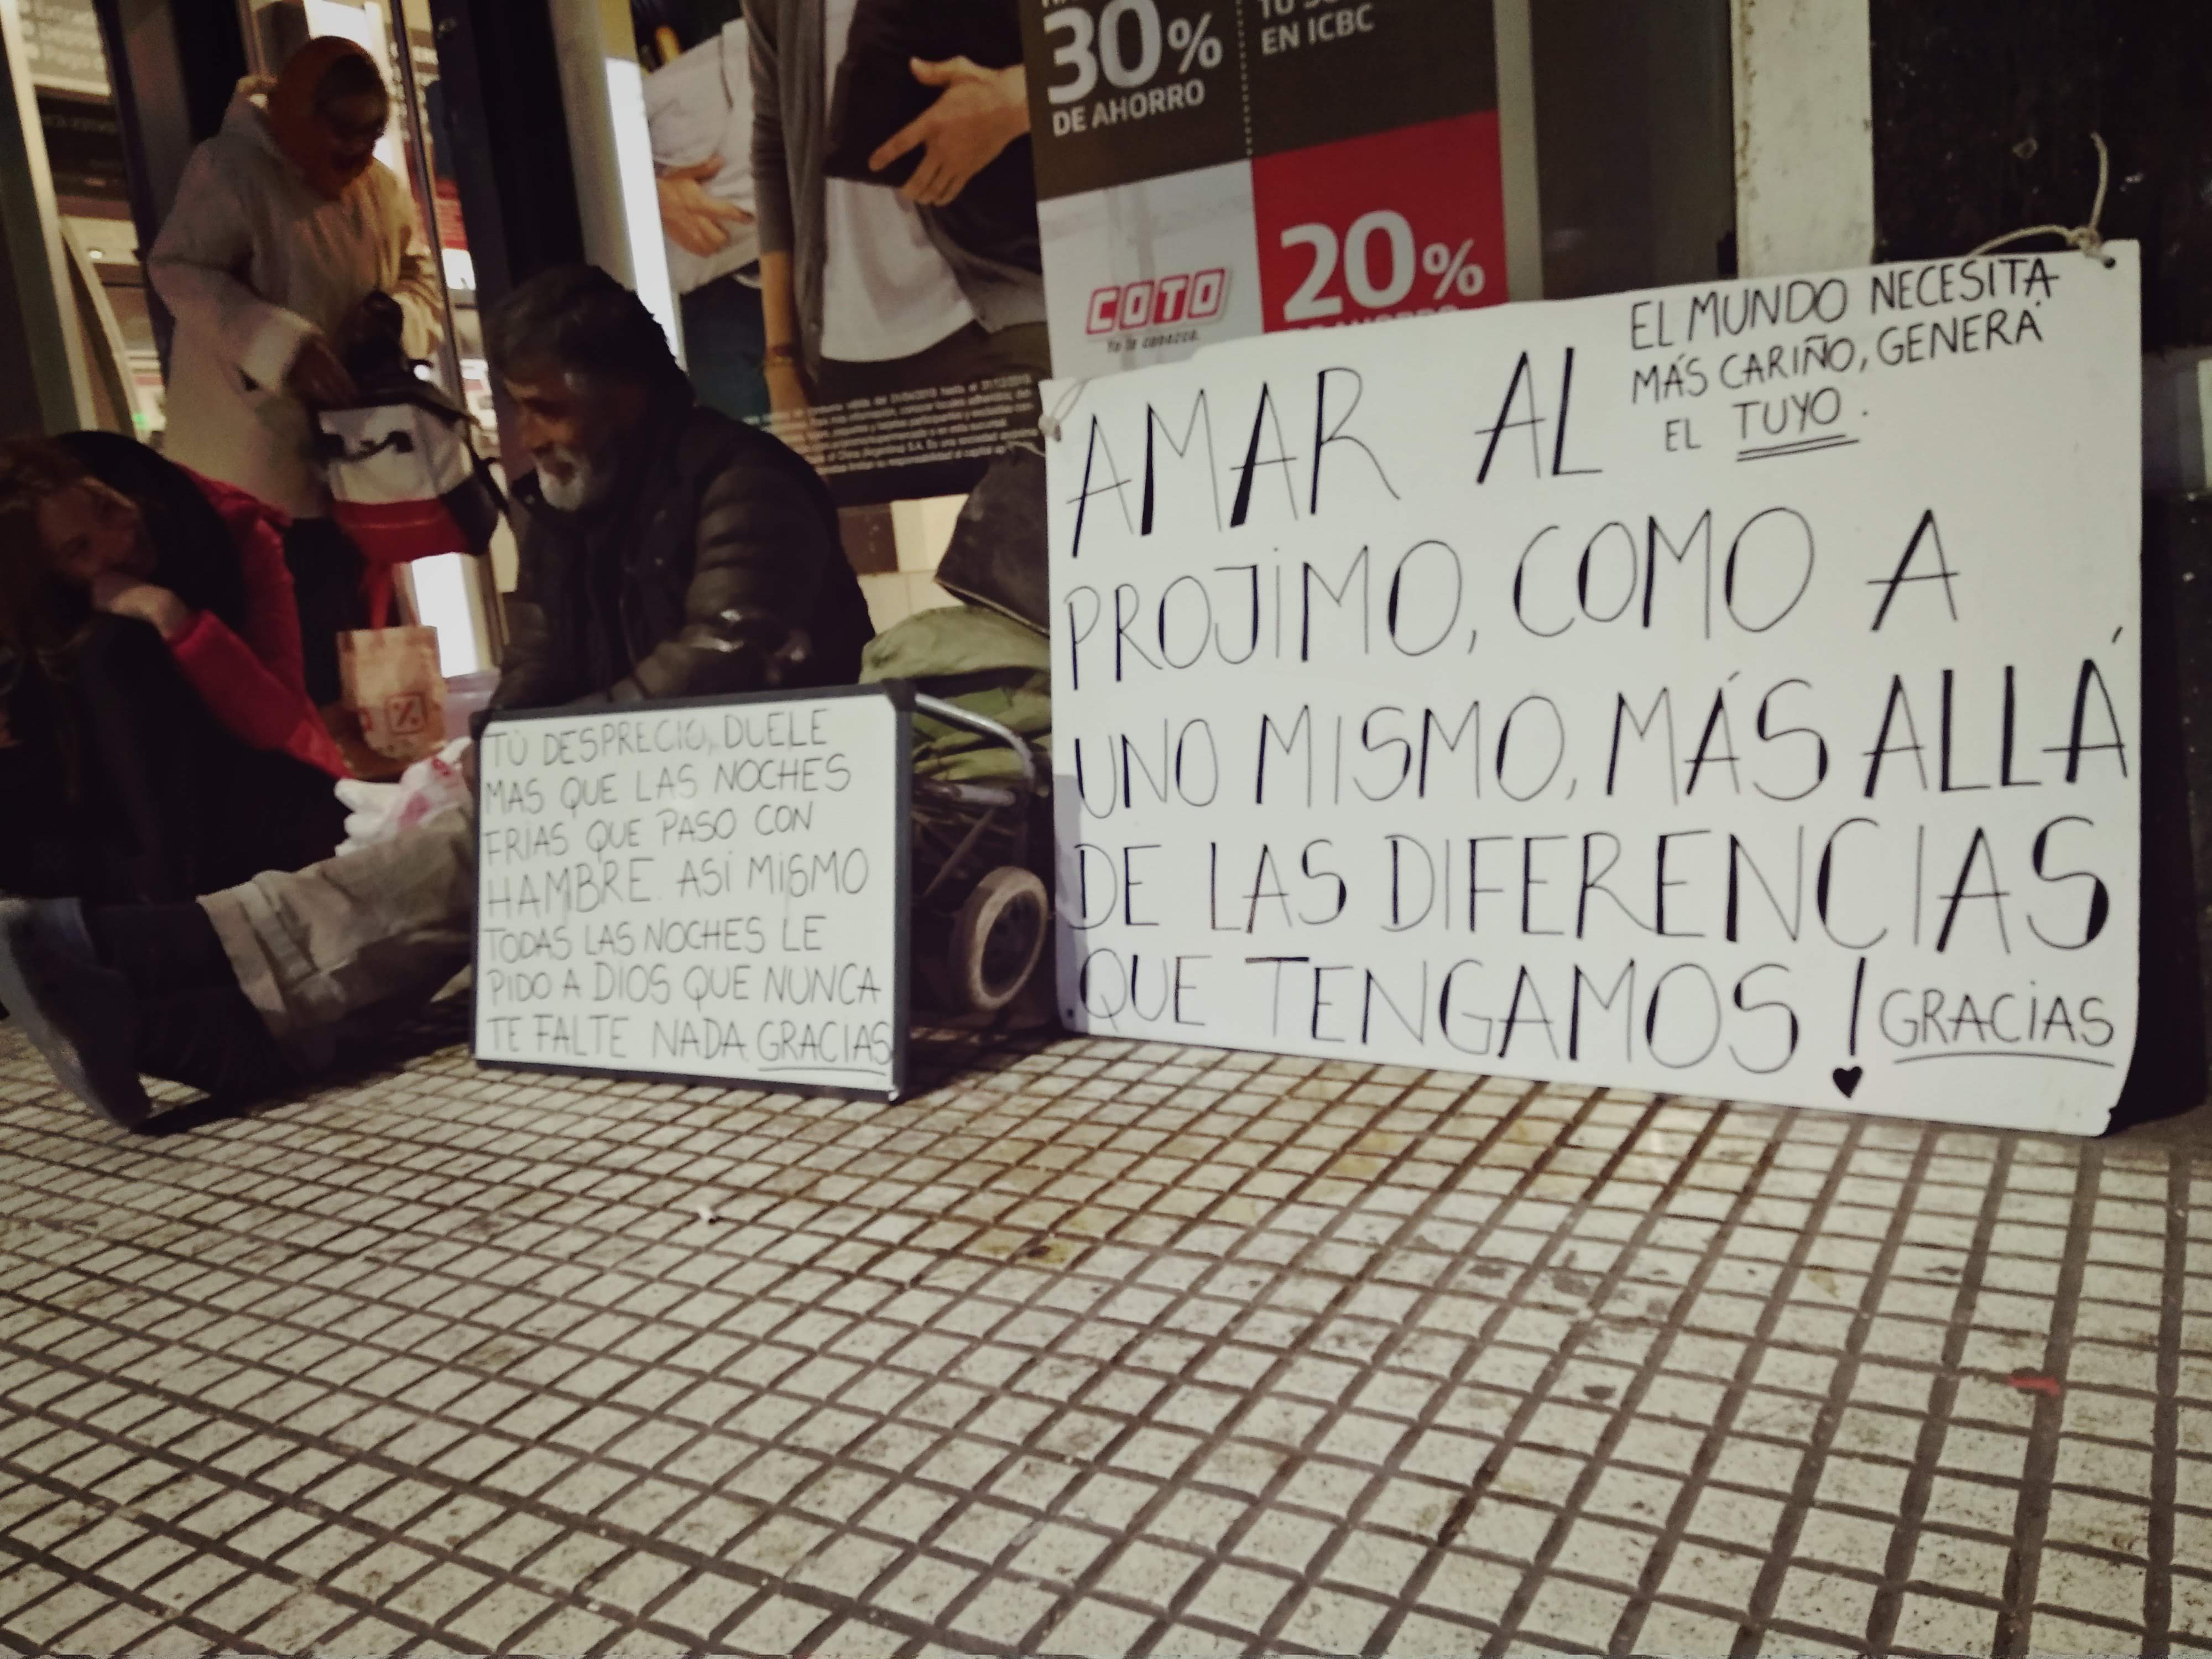 30%
DE AHORRO
EN ICBC
20%
COTO
Yo te conozco.
EL MUNDO NECESITA
MÁS CARIÑO, GENERÁ
EL TUYO.
AMAR AL
PROJIMO, COMO A
UNO MISMO, MÁS ALLÁ
DE LAS DIFERENCIAS
QUE TENGAMOS! GRACIAS
TÚ DESPRECIO, DUELE
MAS QUE LAS NOCHES
FRÍAS QUE PASO CON
HAMBRE. ASÍ MISMO
TODAS LAS NOCHES LE
PIDO A DIOS QUE NUNCA
TE FALTE NADA GRACIAS